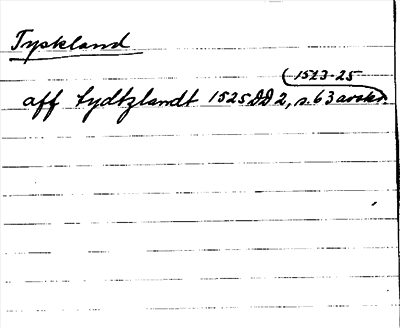 Tyskland
1523-25
aff tydtzlandt 1525 DD 2, s. 63 avskr.